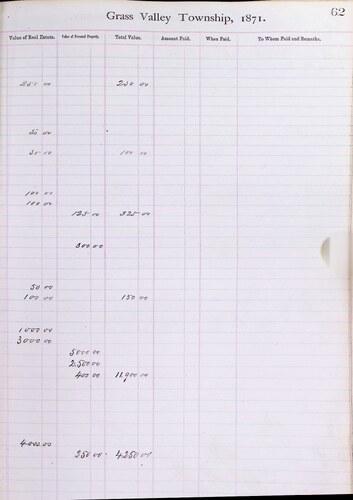 62
Grass Valley Township, 1871.
Value of Real Estate. Value of Personal Property. Total Value. Amount Paid. When Paid. To Whom Paid and Remarks.
250 00 250 00
50 00
50 00 100 00
100 00
100 00
125 00 325 00
300 00
50 00
100 00 150 00
1000 00
3000 00
5000 00
2,500 00
400 00 11,900 00
4000 00
250 00 4250 00